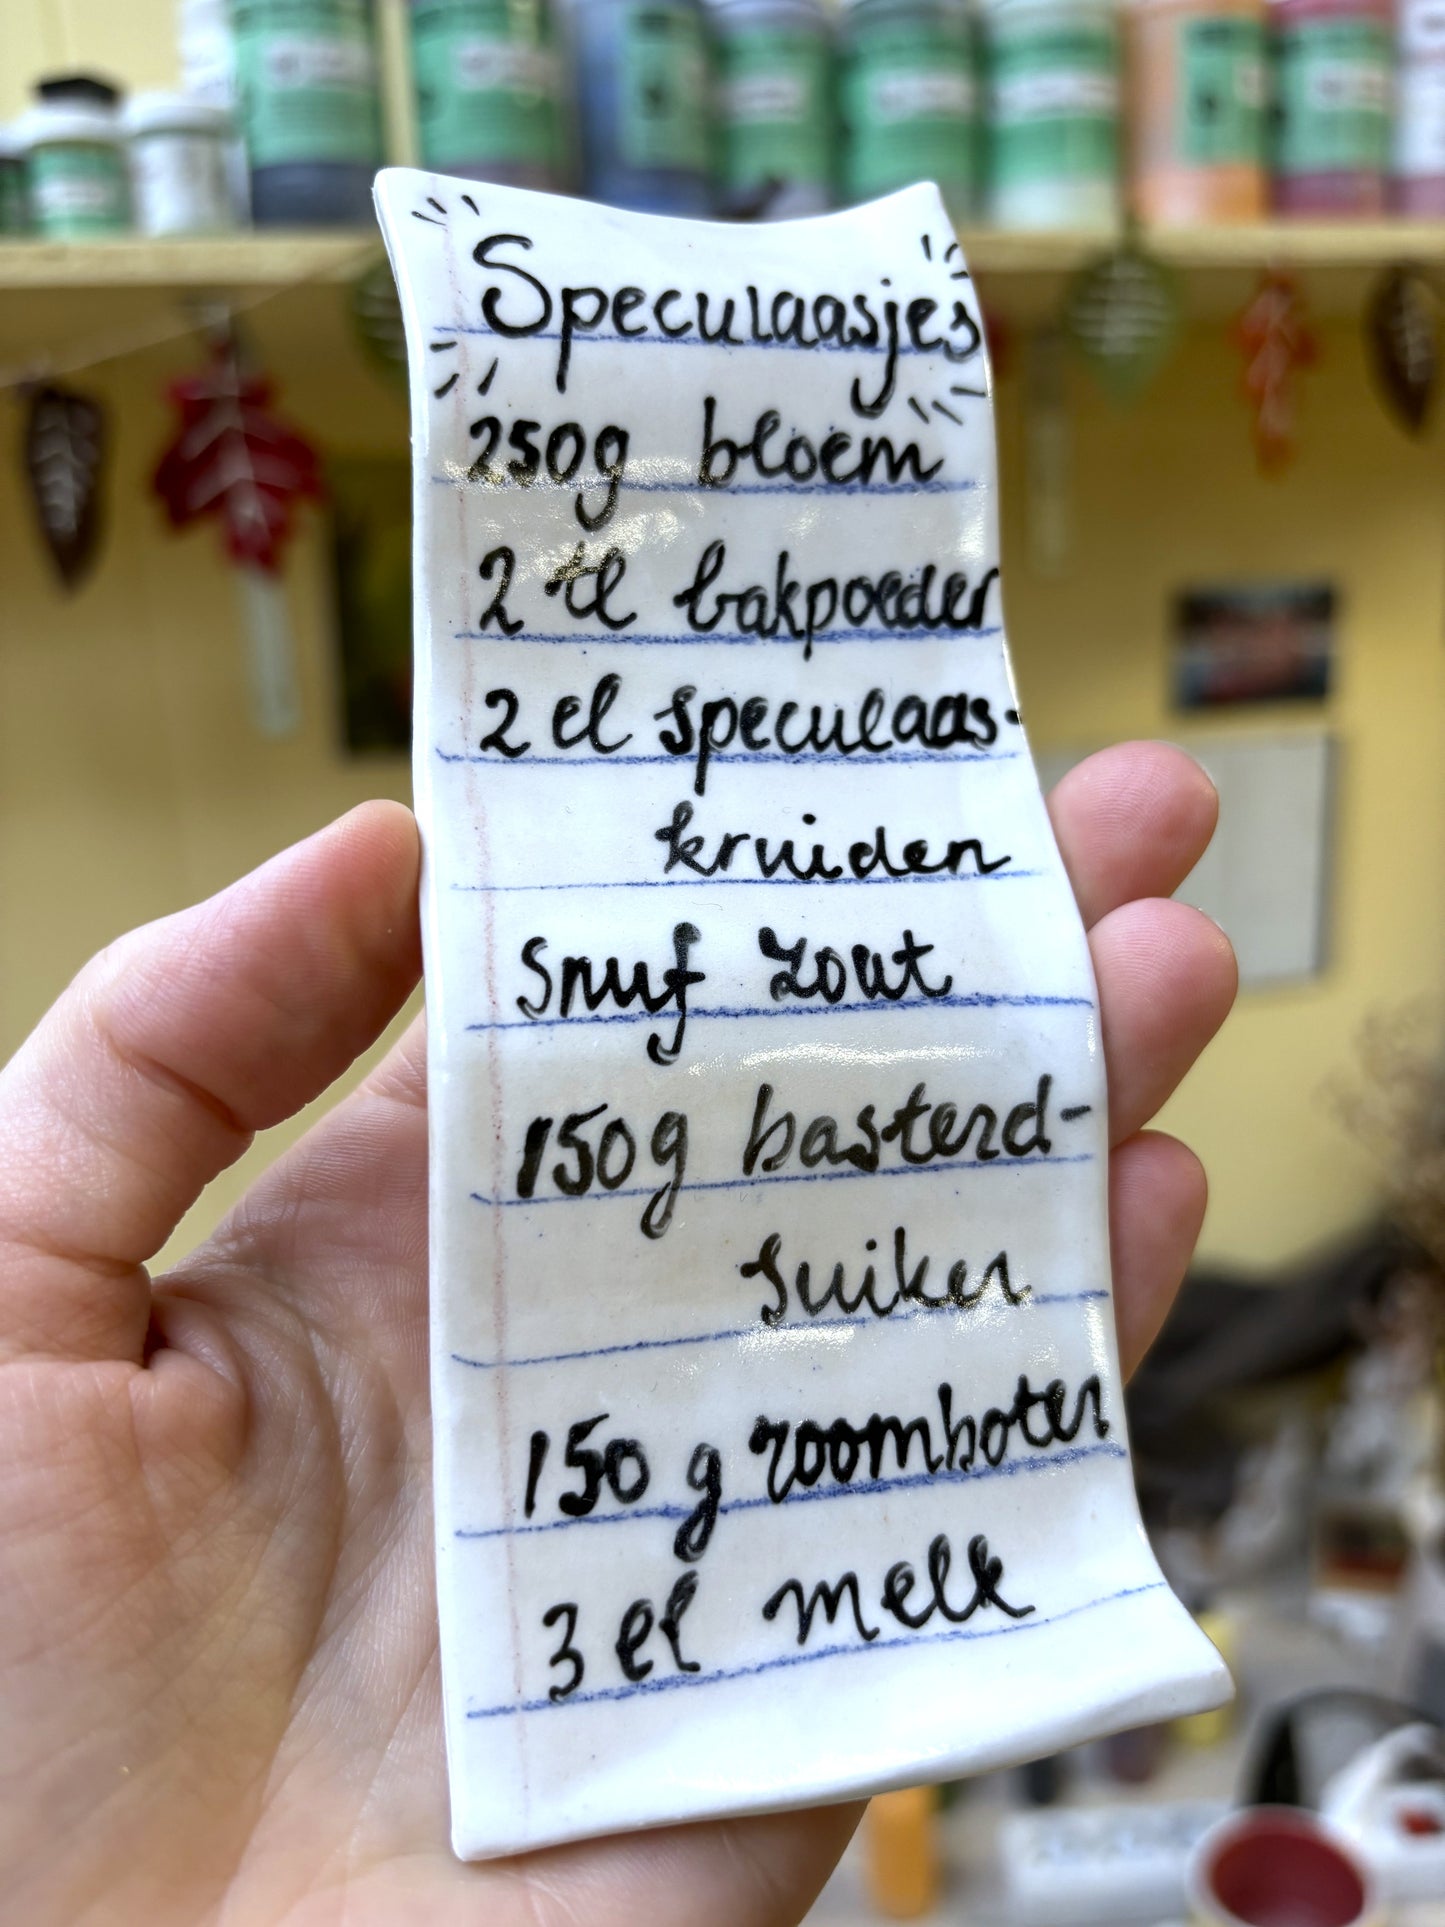 Speculaasjes
250g bloem
2 tl bakpoeder
2 el speculaas-
kruiden
Snuf zout
150g basterd-
suiker
150 g roomboter
3 el melk